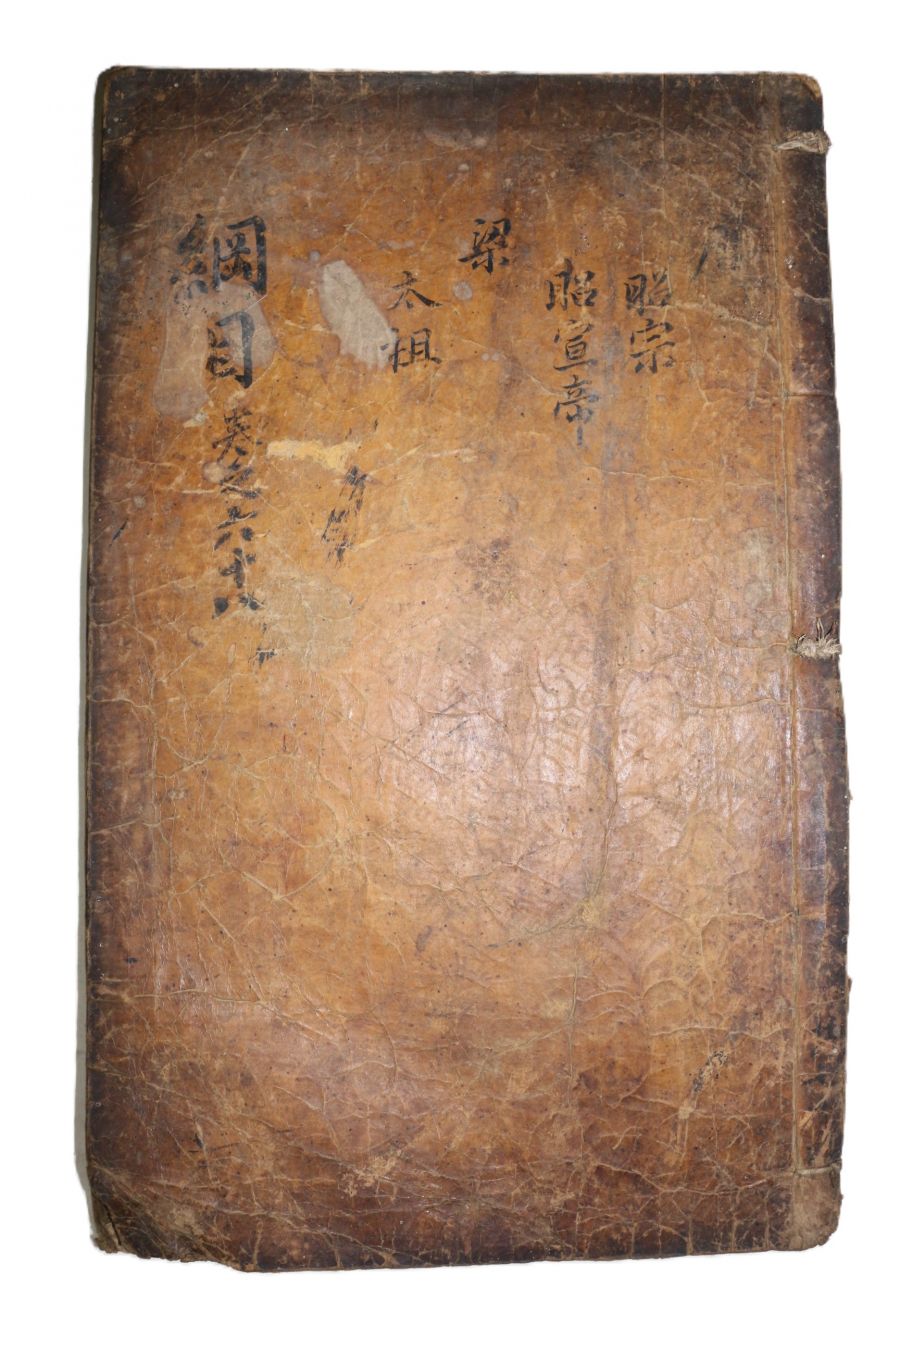 昭宗
昭宣帝
梁
太祖
綱目 卷之六十八